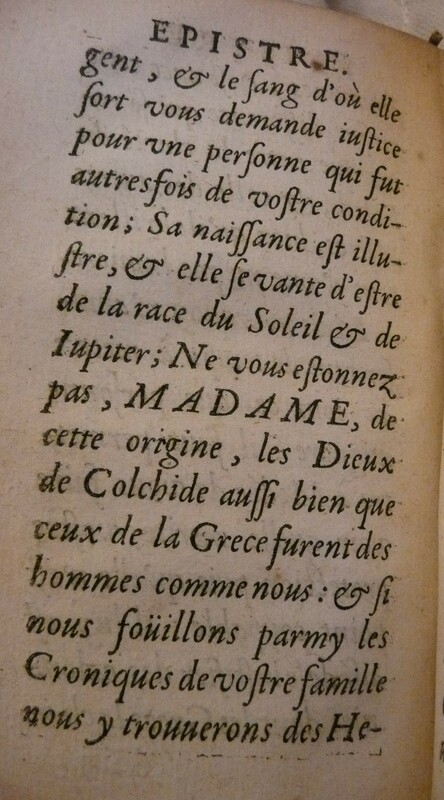 EPISTRE.
gent, & le ſang d'où elle
ſort vous demande iuſtice
pour vne perſonne qui fut
autresfois de voſtre condi-
tion; Sa naiſſance eſt illu-
ſtre, & elle ſe vante d'eſtre
de la race du Soleil & de
Iupiter; Ne vous eſtonnez
pas, MADAME, de
cette origine, les Dieux
de Colchide auſſi bien que
ceux de la Grece furent des
hommes comme nous: & ſi
nous foüillons parmy les
Croniques de voſtre famille
nous y trouuerons des He-